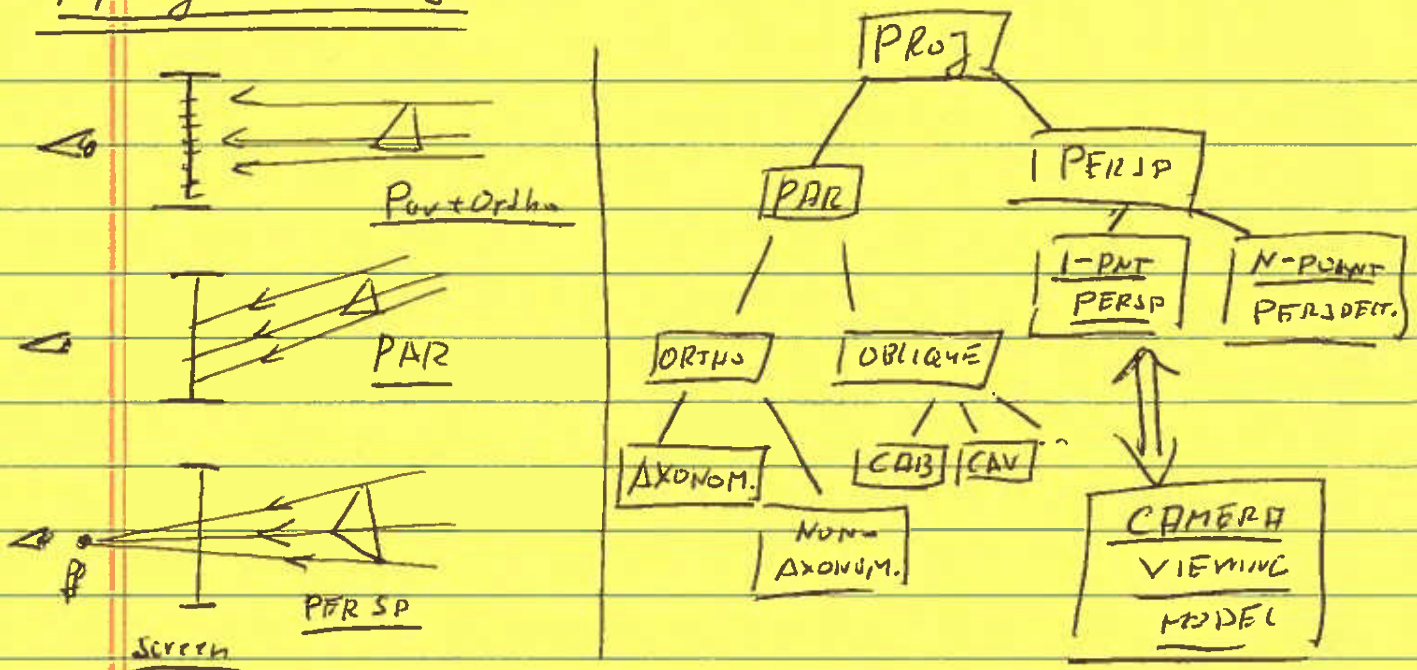 Par + Ortho
PAR
PERSP
Screen
PROJ
PAR
PERSP
1-PNT
PERSP
N-POINT
PERSPECT.
ORTHO
OBLIQUE
AXONOM.
NON-
AXONOM.
CAB
CAV
CAMERA
VIEWING
MODEL